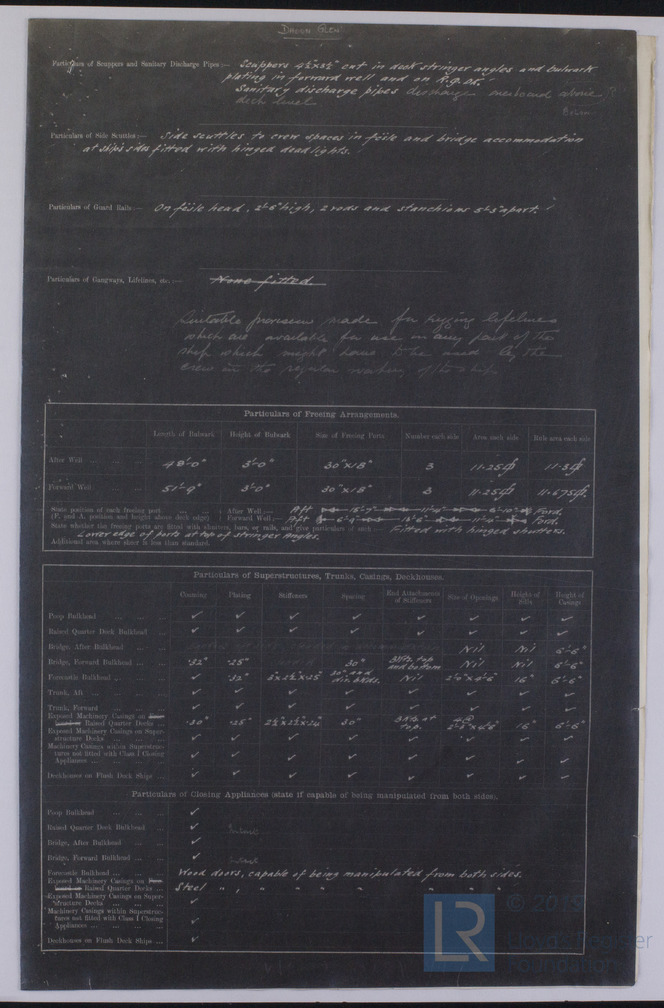 Particulars of Scuppers and Sanitary Discharge Pipes:— Scuppers 4½"x3½" cut in deck stringer angles and bulwark
plating in forward well and on R.Q.Dk.
Sanitary discharge pipes discharge overboard above
deck level
Below
Particulars of Side Scuttles:— Side scuttles to crew spaces in fċsle and bridge accommodation
at ship's sides fitted with hinged deadlights.
Particulars of Guard Rails:— On fċsle head, 2'-6" high, 2 rods and stanchions apart.
Particulars of Gangways, Lifelines, etc.:— None fitted.
Suitable provision made for rigging lifelines
which are available for use in any part of the
ship which might have to be used by the
crew in the regular working of the ship
Particulars of Freeing Arrangements.
Length of Bulwark Height of Bulwark Size of Freeing Ports Number each side Area each side Rule area each side
After Well 49'-0" 3'-0" 30"x18" 3 11.25
Forward Well 51'-9" 3'-0" 30"x18" 3 11.25 11.675
State position of each freeing port (F. and A. position and height above deck edge) After Well:— Aft Ford.
Forward Well:— Aft Ford.
State whether the freeing ports are fitted with shutters, bars, or rails, and give particulars of each:— Fitted with hinged shutters.
Lower edge of ports at top of stringer angles.
Additional area where sheer is less than standard.
Particulars of Superstructures, Trunks, Casings, Deckhouses.
Coaming Plating Stiffeners Spacing End Attachments of Stiffeners Size of Openings Height of Sills Height of Casings
Poop Bulkhead ✓ ✓ ✓ ✓ ✓ ✓ ✓ ✓
Raised Quarter Deck Bulkhead ✓ ✓ ✓ ✓ ✓ ✓ ✓ ✓
Bridge, After Bulkhead Nil Nil 6'-6"
Bridge, Forward Bulkhead .32" .25" 30" Bkts. top and bottom Nil Nil 6'-6"
Forecastle Bulkhead ✓ .32" 3x2½x.25 30" and Nil 2'0"x4'6" 15" 6'-6"
Trunk, Aft ✓ ✓ ✓ ✓ ✓ ✓ ✓ ✓
Trunk, Forward ✓ ✓ ✓ ✓ ✓ ✓ ✓ ✓
Exposed Machinery Casings on Raised Quarter Decks .30" .25" 30" Bkts at top. 15" 6'-6"
Exposed Machinery Casings on Superstructure Decks ✓ ✓ ✓ ✓ ✓ ✓ ✓ ✓
Machinery Casings within Superstructures not fitted with Class I Closing Appliances ✓ ✓ ✓ ✓ ✓ ✓ ✓ ✓
Deckhouses on Flush Deck Ships ✓ ✓ ✓ ✓ ✓ ✓ ✓ ✓
Particulars of Closing Appliances (state if capable of being manipulated from both sides).
Poop Bulkhead ✓
Raised Quarter Deck Bulkhead ✓ Intact
Bridge, After Bulkhead ✓
Bridge, Forward Bulkhead ✓ Intact
Forecastle Bulkhead Wood doors, capable of being manipulated from both sides.
Exposed Machinery Casings on Raised Quarter Decks Steel " " " " " " " "
Exposed Machinery Casings on Superstructure Decks ✓
Machinery Casings within Superstructures not fitted with Class I Closing Appliances ✓
Deckhouses on Flush Deck Ships ✓
LR
© 2019
Lloyd's Register
Foundation